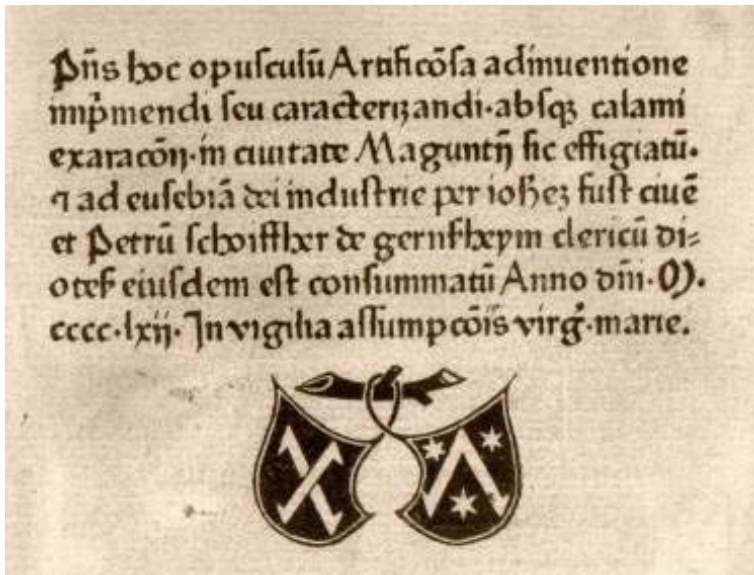 Pñs hoc opuſculū Artificōſa adinuentione
imp̄mendi ſeu caracterizandi·abſqꝫ calami
exaracōn̄·in ciuitate Magunt̄n ſic effigiatū·
⁊ ad euſebiā dei induſtrie per ioh̄eꝫ fuſt ciuē
et Petrū ſchoiffher de gernſheym clericū di⸗
oceſ̄ eiuſdem eſt conſummatū Anno dn̄i·M·
cccc·lxij·In vigilia aſſumpcōis virḡ·marie.